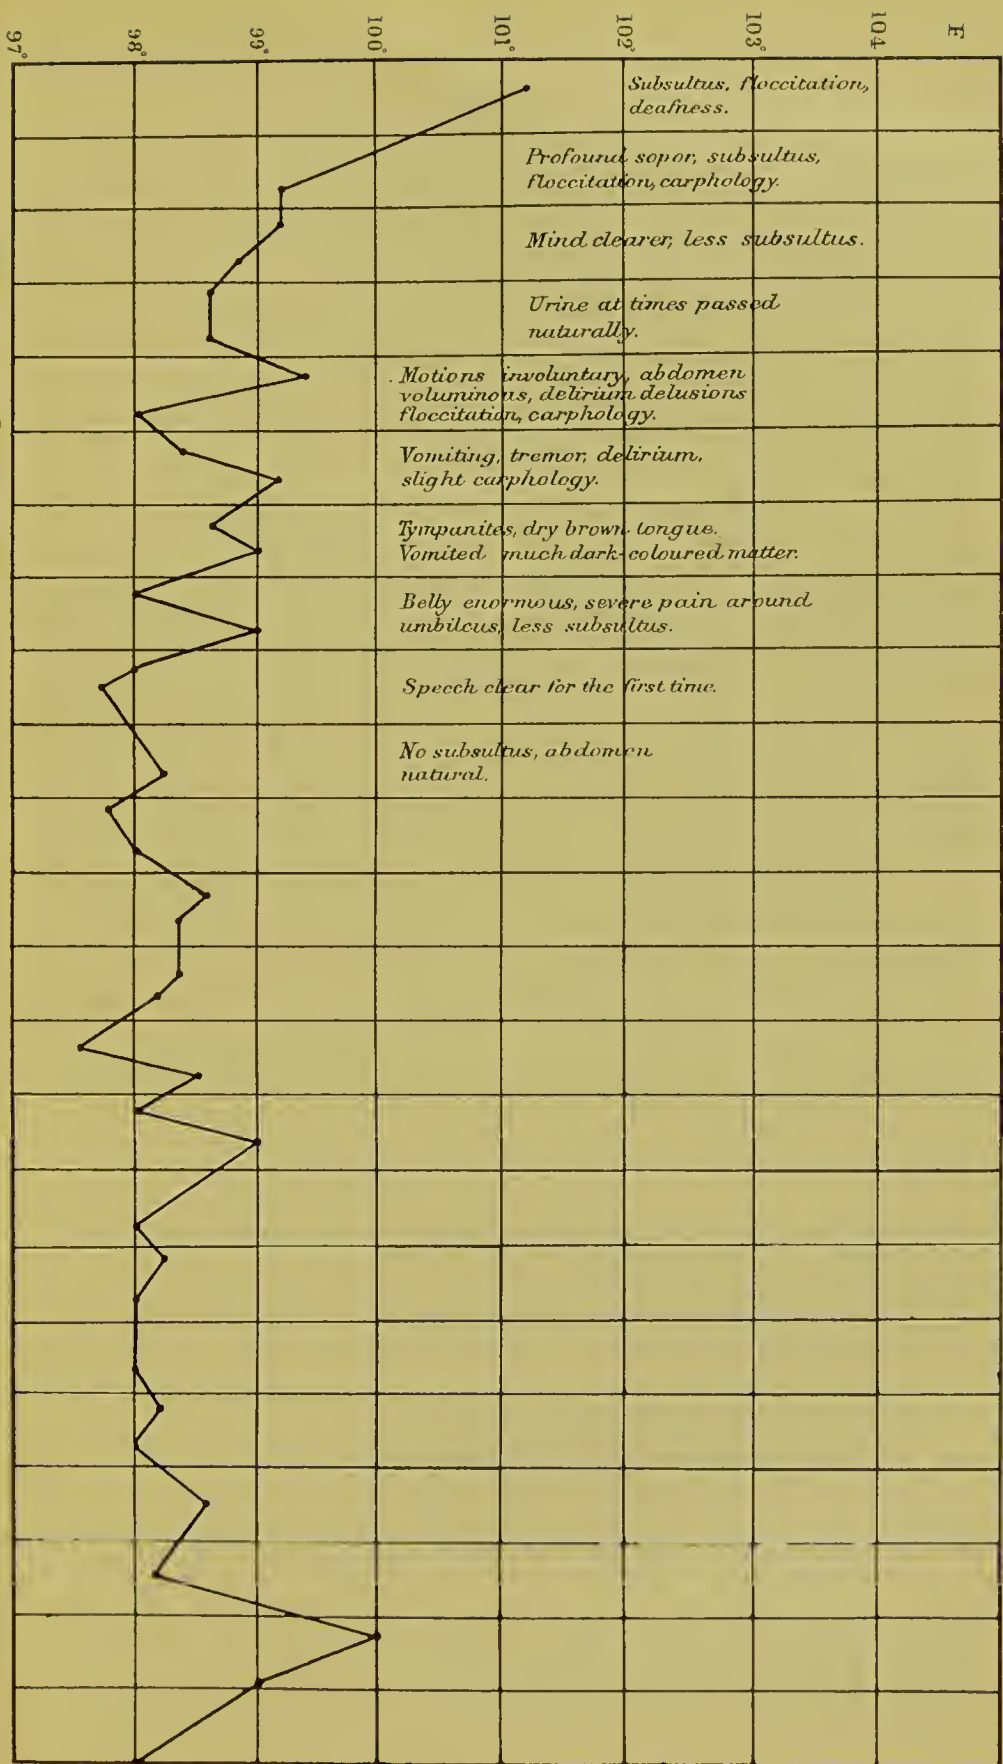 97° 98° 99° 100° 101° 102° 103° 104 F
Subsultus, floccitation,
deafness.
Profound sopor, subsultus,
floccitation, carphology.
Mind clearer, less subsultus.
Urine at times passed
naturally.
Motions involuntary, abdomen
voluminous, delirium delusions
floccitation, carphology.
Vomiting, tremor, delirium,
slight carphology.
Tympanites, dry brown tongue.
Vomited much dark-coloured matter.
Belly enormous, severe pain around
umbilcus, less subsultus.
Speech clear for the first time.
No subsultus, abdomen
natural.